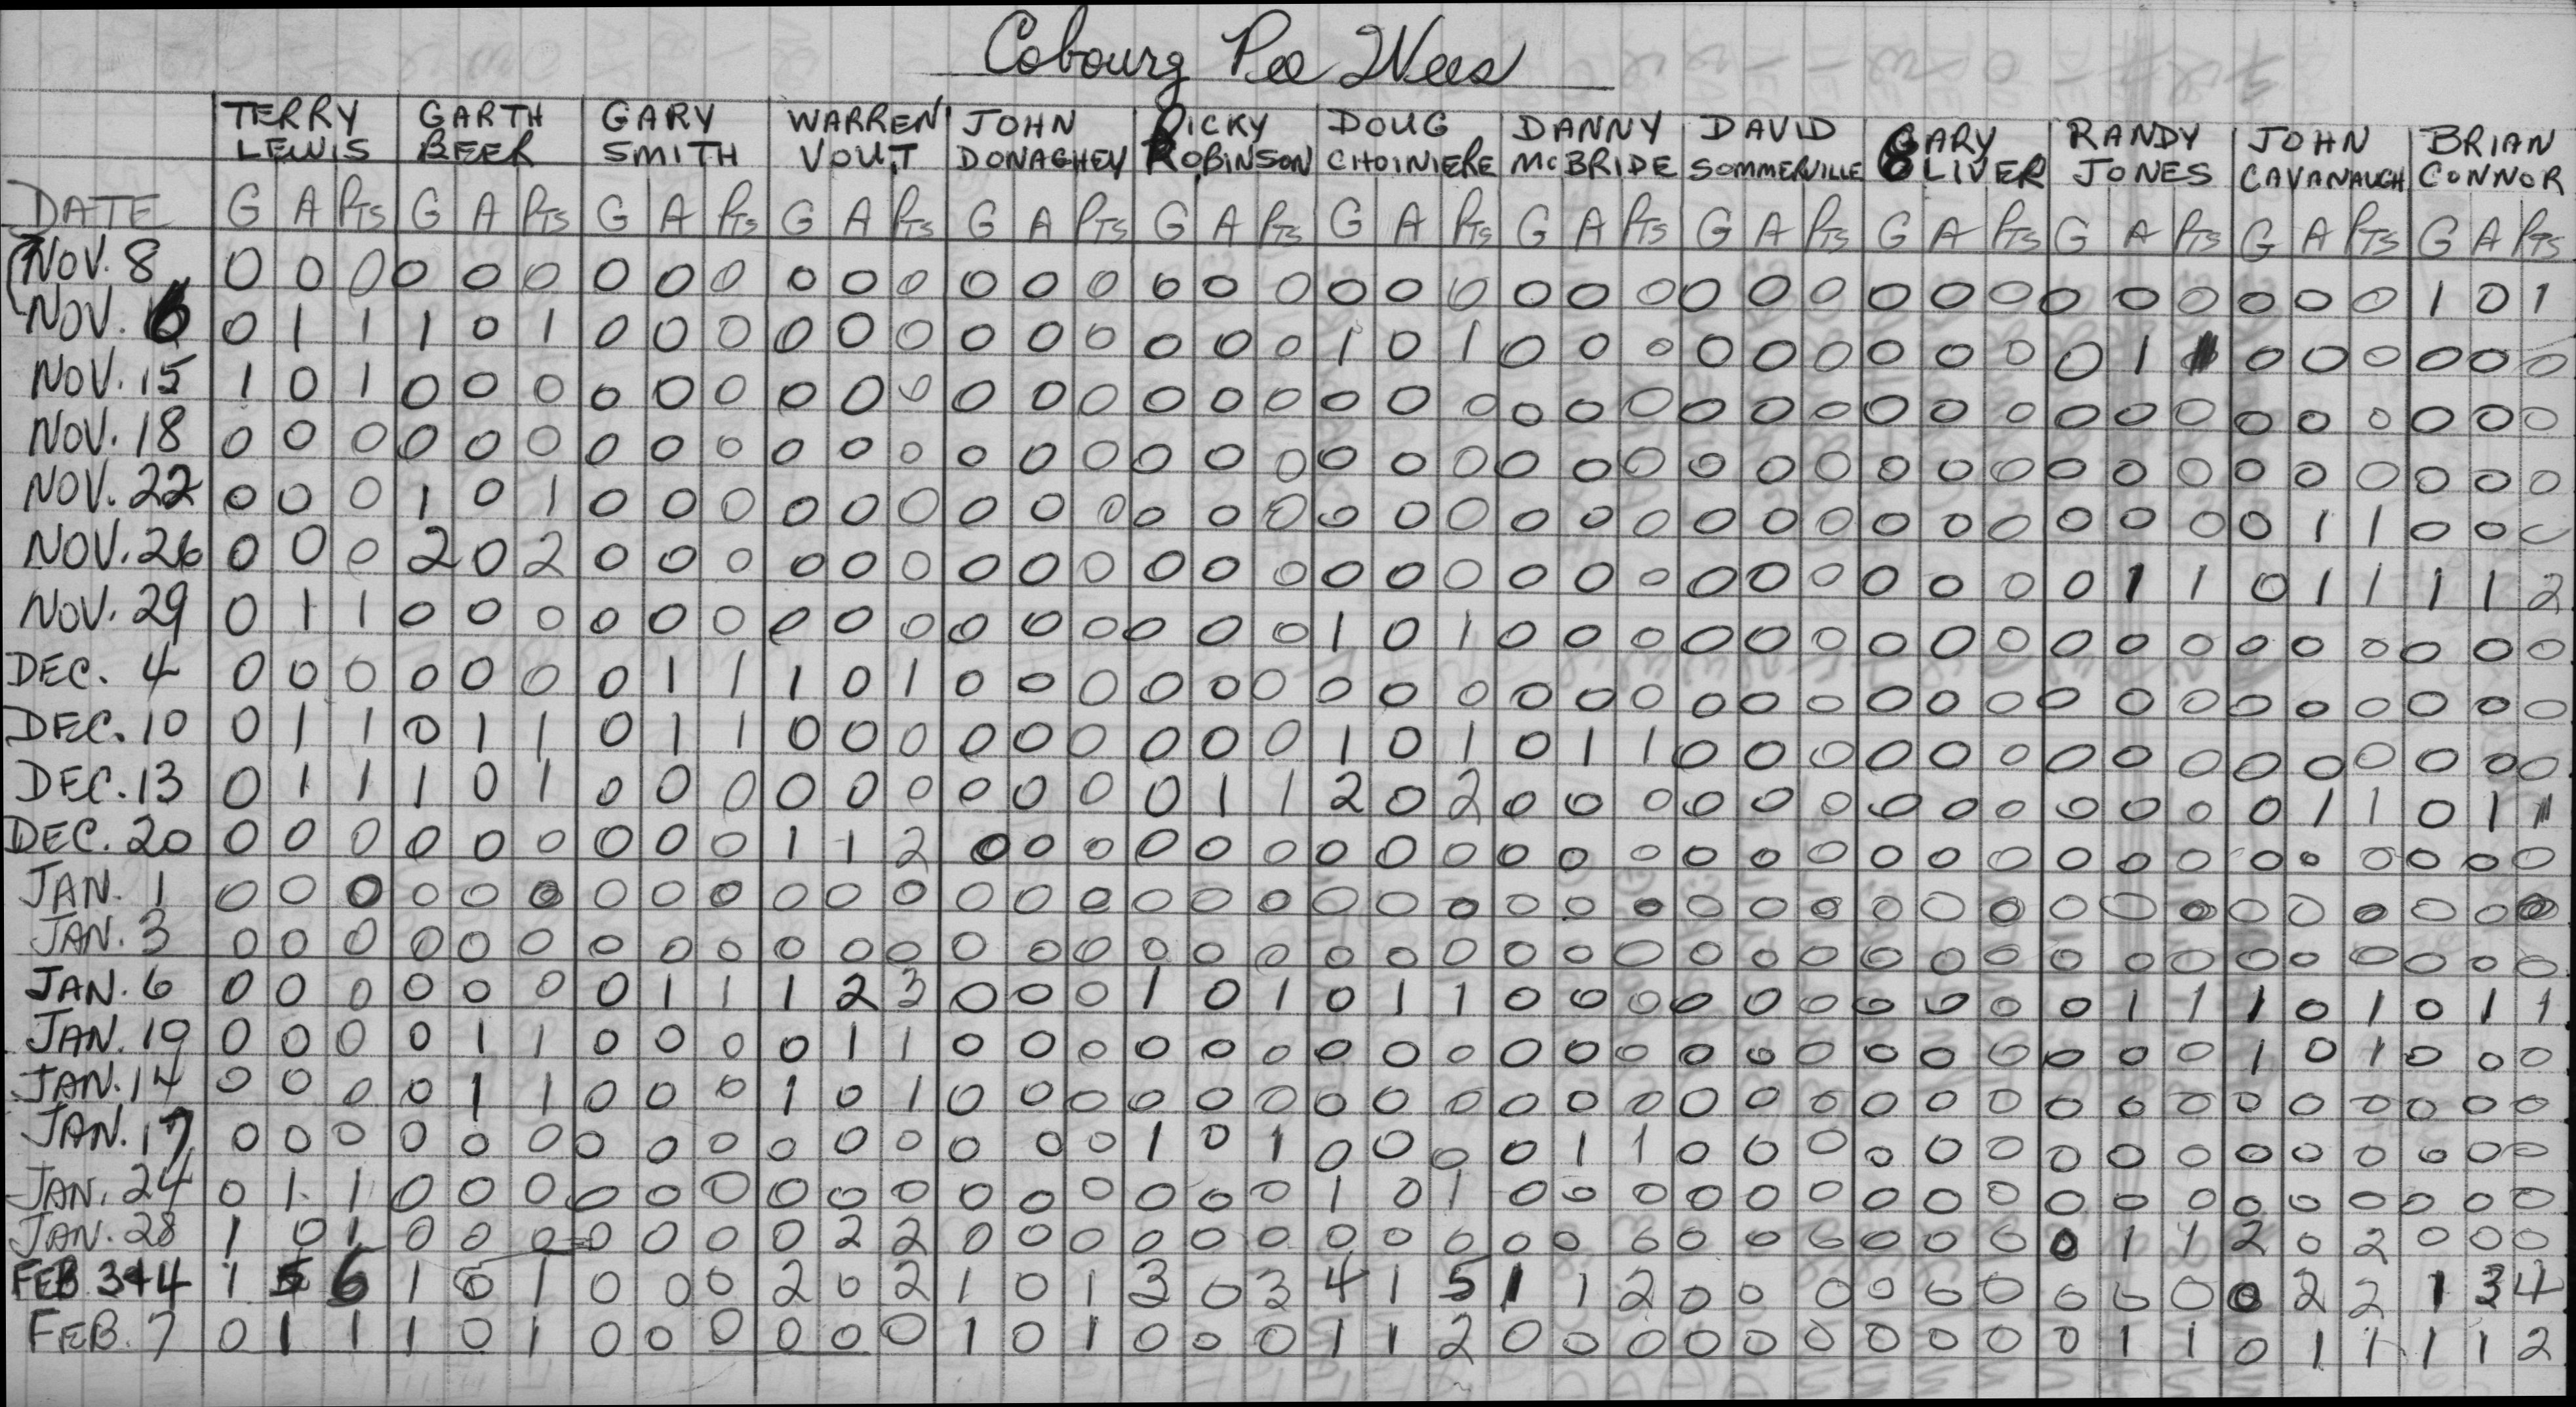 Cobourg Pee Wees
TERRY GARTH GARY WARREN JOHN RICKY DOUG DANNY DAVID GARY RANDY JOHN BRIAN
LEWIS BEER SMITH VOUT DONAGHEY ROBINSON CHOINIERE McBRIDE SOMMERVILLE OLIVER JONES CAVANAUGH CONNOR
DATE G A PTS G A PTS G A PTS G A PTS G A PTS G A PTS G A PTS G A PTS G A PTS G A PTS G A PTS G A PTS G A PTS
NOV. 8 0 0 0 0 0 0 0 0 0 0 0 0 0 0 0 0 0 0 0 0 0 0 0 0 0 0 0 0 0 0 0 0 0 0 0 0 1 0 1
NOV. 6 0 1 1 1 0 1 0 0 0 0 0 0 0 0 0 0 0 0 1 0 1 0 0 0 0 0 0 0 0 0 0 1 1 0 0 0 0 0 0
NOV. 15 1 0 1 0 0 0 0 0 0 0 0 0 0 0 0 0 0 0 0 0 0 0 0 0 0 0 0 0 0 0 0 0 0 0 0 0 0 0 0
NOV. 18 0 0 0 0 0 0 0 0 0 0 0 0 0 0 0 0 0 0 0 0 0 0 0 0 0 0 0 0 0 0 0 0 0 0 0 0 0 0 0
NOV. 22 0 0 0 1 0 1 0 0 0 0 0 0 0 0 0 0 0 0 0 0 0 0 0 0 0 0 0 0 0 0 0 0 0 0 1 1 0 0 0
NOV. 26 0 0 0 2 0 2 0 0 0 0 0 0 0 0 0 0 0 0 0 0 0 0 0 0 0 0 0 0 0 0 0 1 1 0 1 1 1 1 2
NOV. 29 0 1 1 0 0 0 0 0 0 0 0 0 0 0 0 0 0 0 1 0 1 0 0 0 0 0 0 0 0 0 0 0 0 0 0 0 0 0 0
DEC. 4 0 0 0 0 0 0 0 1 1 1 0 1 0 0 0 0 0 0 0 0 0 0 0 0 0 0 0 0 0 0 0 0 0 0 0 0 0 0 0
DEC. 10 0 1 1 0 1 1 0 1 1 0 0 0 0 0 0 0 0 0 1 0 1 0 1 1 0 0 0 0 0 0 0 0 0 0 0 0 0 0 0
DEC. 13 0 1 1 1 0 1 0 0 0 0 0 0 0 0 0 0 1 1 2 0 2 0 0 0 0 0 0 0 0 0 0 0 0 0 1 1 0 1 1
DEC. 20 0 0 0 0 0 0 0 0 0 1 1 2 0 0 0 0 0 0 0 0 0 0 0 0 0 0 0 0 0 0 0 0 0 0 0 0 0 0 0
JAN. 1 0 0 0 0 0 0 0 0 0 0 0 0 0 0 0 0 0 0 0 0 0 0 0 0 0 0 0 0 0 0 0 0 0 0 0 0 0 0 0
JAN. 3 0 0 0 0 0 0 0 0 0 0 0 0 0 0 0 0 0 0 0 0 0 0 0 0 0 0 0 0 0 0 0 0 0 0 0 0 0 0 0
JAN. 6 0 0 0 0 0 0 0 1 1 1 2 3 0 0 0 1 0 1 0 1 1 0 0 0 0 0 0 0 0 0 0 1 1 1 0 1 0 1 1
JAN. 10 0 0 0 0 1 1 0 0 0 0 1 1 0 0 0 0 0 0 0 0 0 0 0 0 0 0 0 0 0 0 0 0 0 1 0 1 0 0 0
JAN. 14 0 0 0 0 1 1 0 0 0 1 0 1 0 0 0 0 0 0 0 0 0 0 0 0 0 0 0 0 0 0 0 0 0 0 0 0 0 0 0
JAN. 17 0 0 0 0 0 0 0 0 0 0 0 0 0 0 0 1 0 1 0 0 0 0 1 1 0 0 0 0 0 0 0 0 0 0 0 0 0 0 0
JAN. 24 0 1 1 0 0 0 0 0 0 0 0 0 0 0 0 0 0 0 1 0 1 0 0 0 0 0 0 0 0 0 0 0 0 0 0 0 0 0 0
JAN. 28 1 0 1 0 0 0 0 0 0 0 2 2 0 0 0 0 0 0 0 0 0 0 0 0 0 0 0 0 0 0 0 1 1 2 0 2 0 0 0
FEB 3+4 1 5 6 1 0 1 0 0 0 2 0 2 1 0 1 3 0 3 4 1 5 1 1 2 0 0 0 0 0 0 0 0 0 0 2 2 1 3 4
FEB. 7 0 1 1 1 0 1 0 0 0 0 0 0 1 0 1 0 0 0 1 1 2 0 0 0 0 0 0 0 0 0 0 1 1 0 1 1 1 1 2